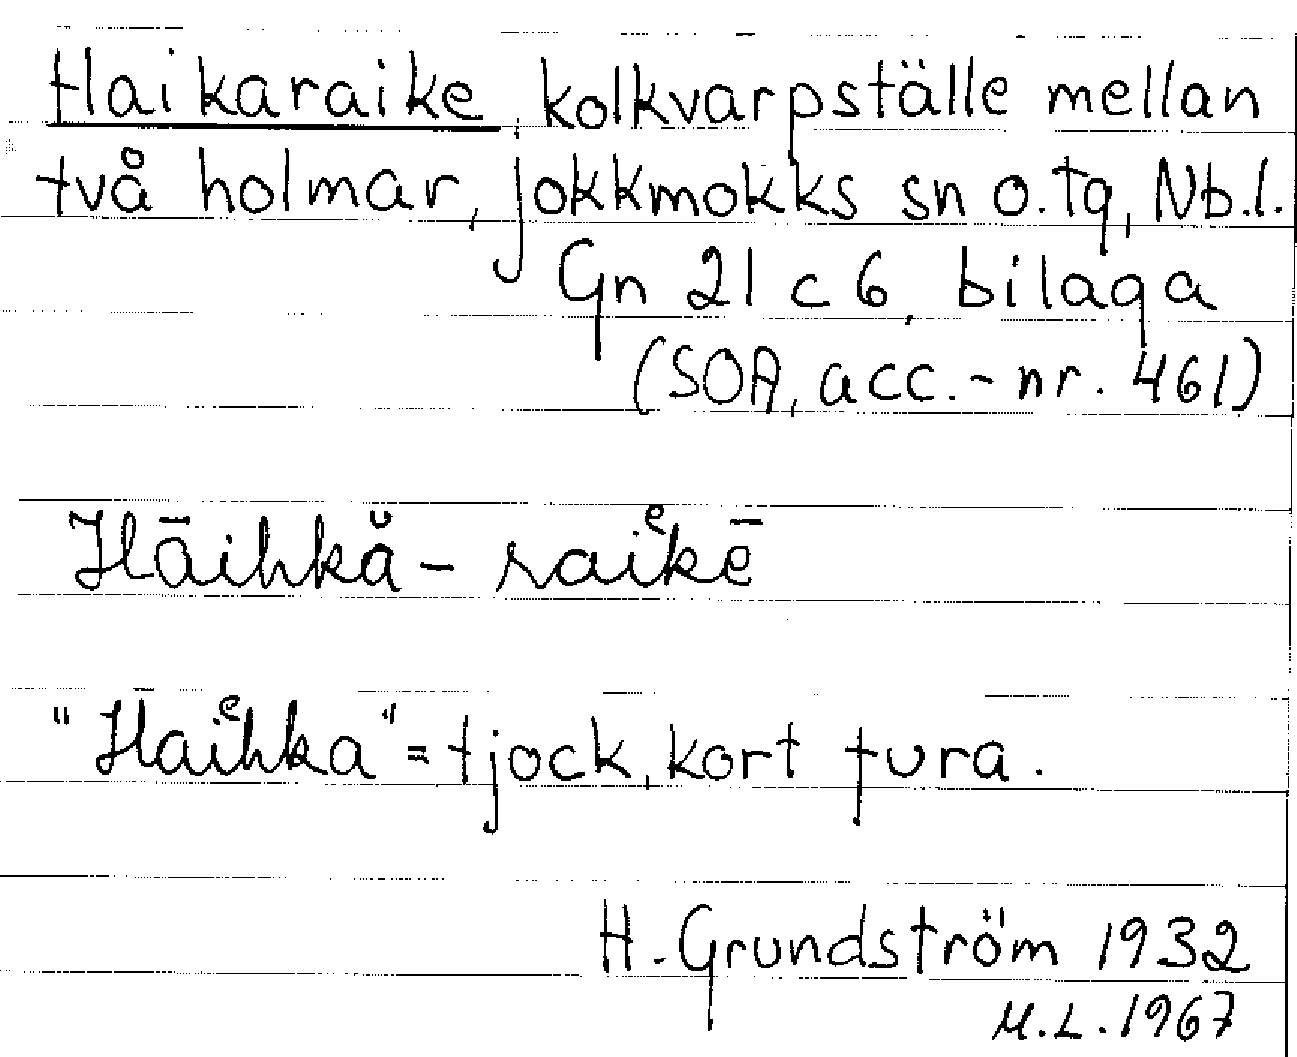 Haikaraike, kolkvarpställe mellan
två holmar, jokkmokks sn o. tg, Nb.l.
Gn 21 c 6, bilaga
(SOA, acc.-nr. 461)
Hāihkă̊ - raiͤkē
"Haiͤhka" = tjock, kort fura.
H. Grundström 1932
M.L. 1967